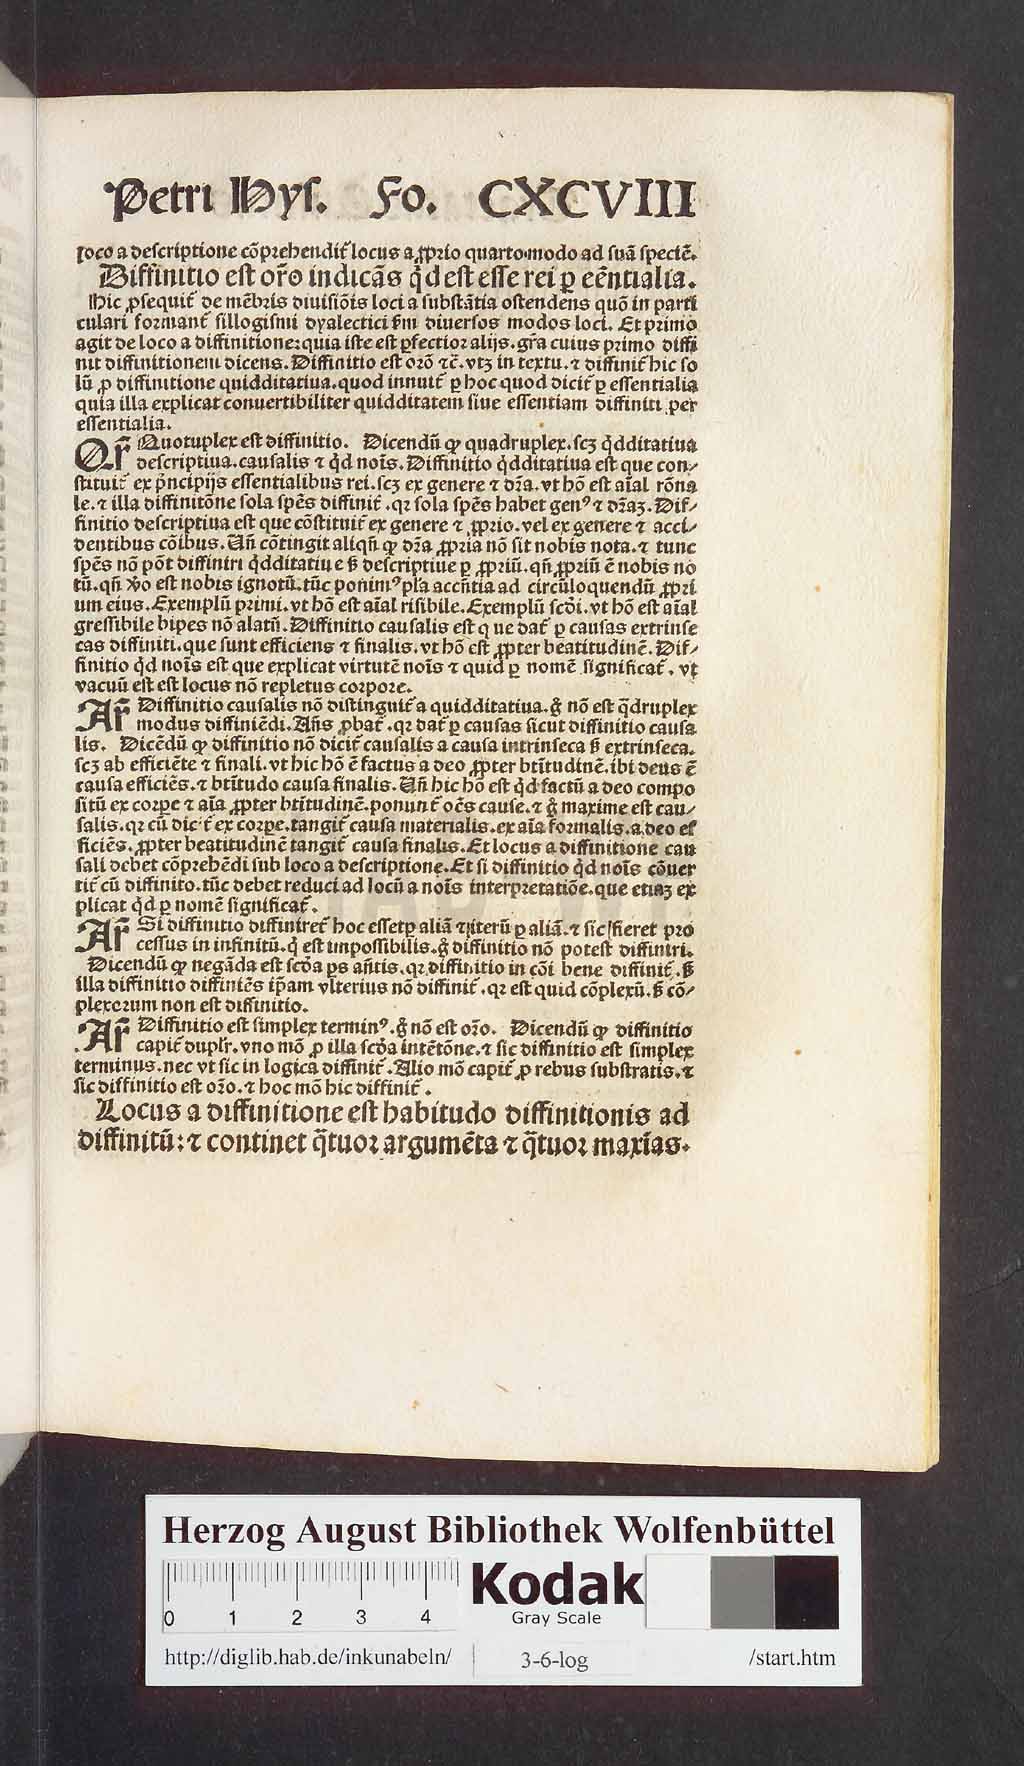 Petri Hys. Fo. CXCVIII
loco a descriptione cōprehendit̃ locus a ꝓprio quarto modo ad suā speciē.
Diffinitio est or̃o indicãs qͥd est esse rei ꝑ eẽntialia.
Hic ꝓsequit̃ de mēbris diuisiōis loci a substātia ostendens quō in parti
culari formant̃ sillogismi dyalectici ẜm diuersos modos loci. Et primo
agit de loco a diffinitione: quia iste est ꝑfectior alijs. gr̃a cuius primo diffi
nit diffinitionem dicens. Diffinitio est orō ⁊c̃. vtꝫ in textu. ⁊ diffinit̃ hic so
lū ꝓ diffinitione quidditatiua. quod innuit̃ ꝑ hoc quod dicit̃ ꝑ essentialia
quia illa explicat conuertibiliter quidditatem siue essentiam diffiniti per
essentialia.
Qr̃ Quotuplex est diffinitio. Dicendū ꝙ quadruplex. scꝫ qͥdditatiua
descriptiua. causalis ⁊ qͥd noīs. Diffinitio qͥdditatiua est que con-
stituit̃ ex pͥncipijs essentialibus rei. scꝫ ex genere ⁊ dr̃a. vt hō est aīal rōna
le. ⁊ illa diffinitōne sola spēs diffinit̃. qꝛ sola spēs habet genꝰ ⁊ dr̃aꝫ. Dif-
finitio descriptiua est que cōstituit̃ ex genere ⁊ ꝓprio. vel ex genere ⁊ acci-
dentibus cōibus. Uñ cōtingit aliqñ ꝙ dr̃a ꝓpria nō sit nobis nota. ⁊ tunc
spēs nō pōt diffiniri qͥdditatiue ẜ descriptiue ꝑ ꝓpriū. qñ ꝓpriū ē nobis no
tū. qñ ꝟo est nobis ignotū. tūc ponimꝰ pla accñtia ad circūloquendū ꝓpri
um eius. Exemplū primi. vt hō est aīal risibile. Exemplū scd̃i. vt hō est aīal
gressibile bipes nō alatū. Diffinitio causalis est que dat̃ ꝑ causas extrinse
cas diffiniti. que sunt efficiens ⁊ finalis. vt hō est ꝓpter beatitudinē. Dif-
finitio qͥd noīs est que explicat virtutē noīs ⁊ quid ꝑ nomē significat̃. vt
vacuū est est locus nō repletus corpore.
Ar̃ Diffinitio causalis nō distinguit̃ a quidditatiua. gͦ nō est q̃druplex
modus diffiniēdi. Añs ꝓbat̃. qꝛ dat̃ ꝑ causas sicut diffinitio causa
lis. Dicēdū ꝙ diffinitio nō dicit̃ causalis a causa intrinseca ẜ extrinseca.
scꝫ ab efficiēte ⁊ finali. vt hic hō ē factus a deo ꝓpter bt̃itudinē. ibi deus ē
causa efficiēs. ⁊ bt̃itudo causa finalis. Uñ hic hō est qͥd factū a deo compo
sitū ex corpe ⁊ aīa ꝓpter bt̃itudinē. ponunt̃ oēs cause. ⁊ gͦ maxime est cau-
salis. qꝛ cū dicit̃ ex corpe. tangit̃ causa materialis. ex aīa formalis. a deo ef
ficiēs. ꝓpter beatitudinē tangit̃ causa finalis. Et locus a diffinitione cau
sali debet cōprehēdi sub loco a descriptione. Et si diffinitio qͥd noīs cōuer
tit̃ cū diffinito. tūc debet reduci ad locū a noīs interpretatiōe. que etiaꝫ ex
plicat qͥd ꝑ nomē significat̃.
Ar̃ Si diffinitio diffiniret̃ hoc esset ꝑ aliā ⁊ iterū ꝑ aliā. ⁊ sic fieret pro
cessus in infinitū. qͥ est impossibilis. gͦ diffinitio nō potest diffiniri.
Dicendū ꝙ negāda est scd̃a ps añtis. qꝛ diffinitio in cōi bene diffinit̃. ẜ
illa diffinitio diffiniēs ip̃am vlterius nō diffinit̃. qꝛ est quid cōplexū. ẜ cō-
plexorum non est diffinitio.
Ar̃ Diffinitio est simplex terminꝰ. gͦ nō est or̃o. Dicendū ꝙ diffinitio
capit̃ duplr̃. vno mō ꝓ illa scd̃a intētōne. ⁊ sic diffinitio est simplex
terminus. nec vt sic in logica diffinit̃. Alio mō capit̃ ꝓ rebus substratis. ⁊
sic diffinitio est or̃o. ⁊ hoc mō hic diffinit̃.
Locus a diffinitione est habitudo diffinitionis ad
diffinitū: ⁊ continet q̃tuor argumēta ⁊ q̃tuor maxīas.
Herzog August Bibliothek Wolfenbüttel
0 1 2 3 4
Kodak
Gray Scale
http://diglib.hab.de/inkunabeln/ 3-6-log /start.htm